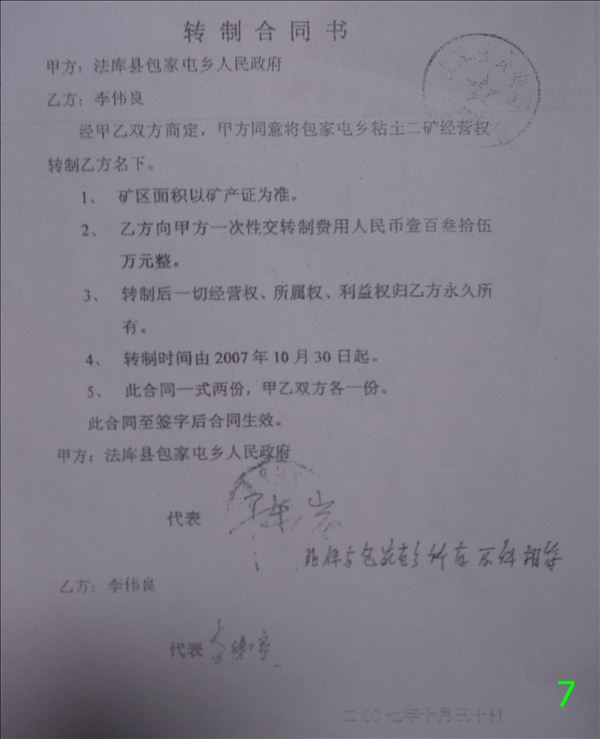 转制合同书
甲方：法库县包家屯乡人民政府
乙方：李伟良
经甲乙双方商定，甲方同意将包家屯乡粘土二矿经营权
转制乙方名下。
1、 矿区面积以矿产证为准。
2、 乙方向甲方一次性交转制费用人民币壹百叁拾伍
万元整。
3、 转制后一切经营权、所属权、利益权归乙方永久所
有。
4、 转制时间由2007年10月30日起。
5、 此合同一式两份，甲乙双方各一份。
此合同至签字后合同生效。
甲方：法库县包家屯乡人民政府
代表
乙方：李伟良
代表 李伟良
二00七年十月三十日
7